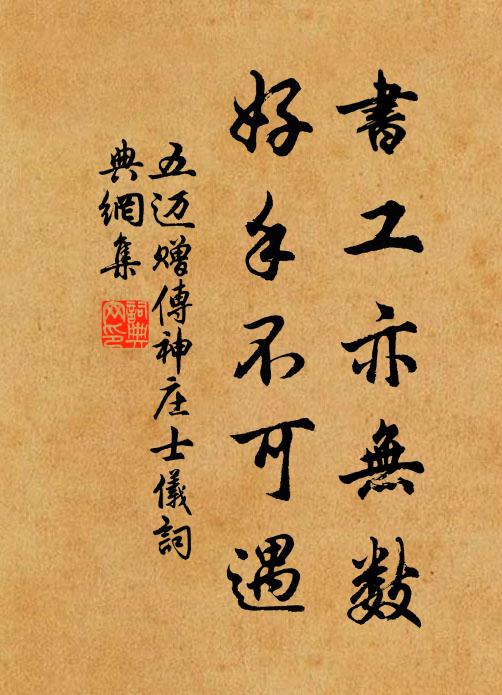 書工亦無數
好手不可遇
五迈贈傳神庄士儀詞
典網集
詞典
网印